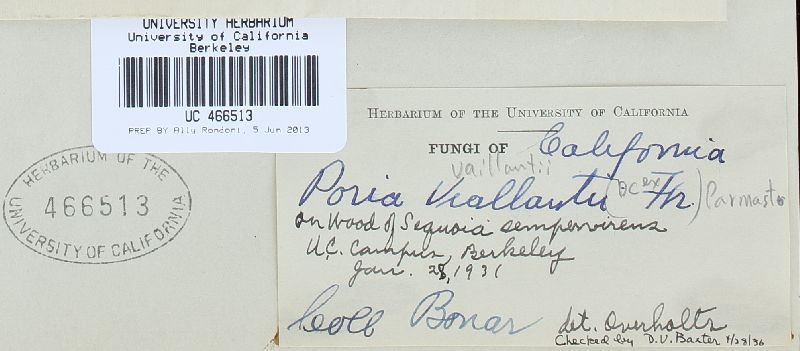 UNIVERSITY HERBARIUM
University of California
Berkeley
UC 466513
PREP BY Ally Rondoni, 5 Jun 2013
HERBARIUM OF THE
466513
UNIVERSITY OF CALIFORNIA
HERBARIUM OF THE UNIVERSITY OF CALIFORNIA
FUNGI OF California
vaillantii
Poria Viallantii (DC ex Fr.) Parmasto
on Wood of Sequoia sempervirens
U.C. Campus, Berkeley
Jan. 28, 1931
Coll Bonar det. Overholts
Checked by D.V. Baxter 4/28/36